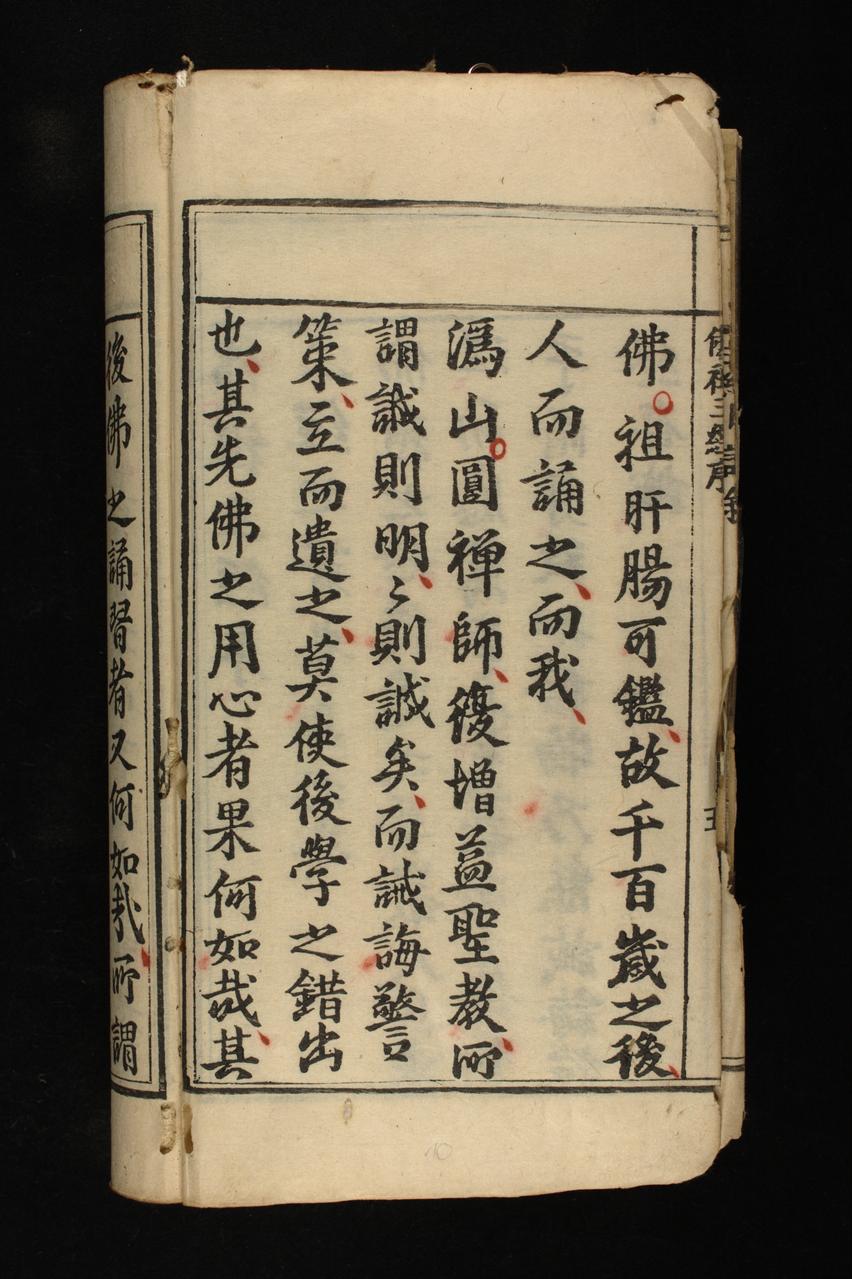 佛祖三經序
五
佛。祖肝腸可鑑、故千百歲之後、
人而誦之、而我、
溈山。圓禅師、復增益聖教、所
謂誠則明、〻則誠矣、而誡誨警
策、立而遺之、莫使後學之錯出
也、其先佛之用心者果何如哉、其
後佛之誦習者又何如哉、所謂